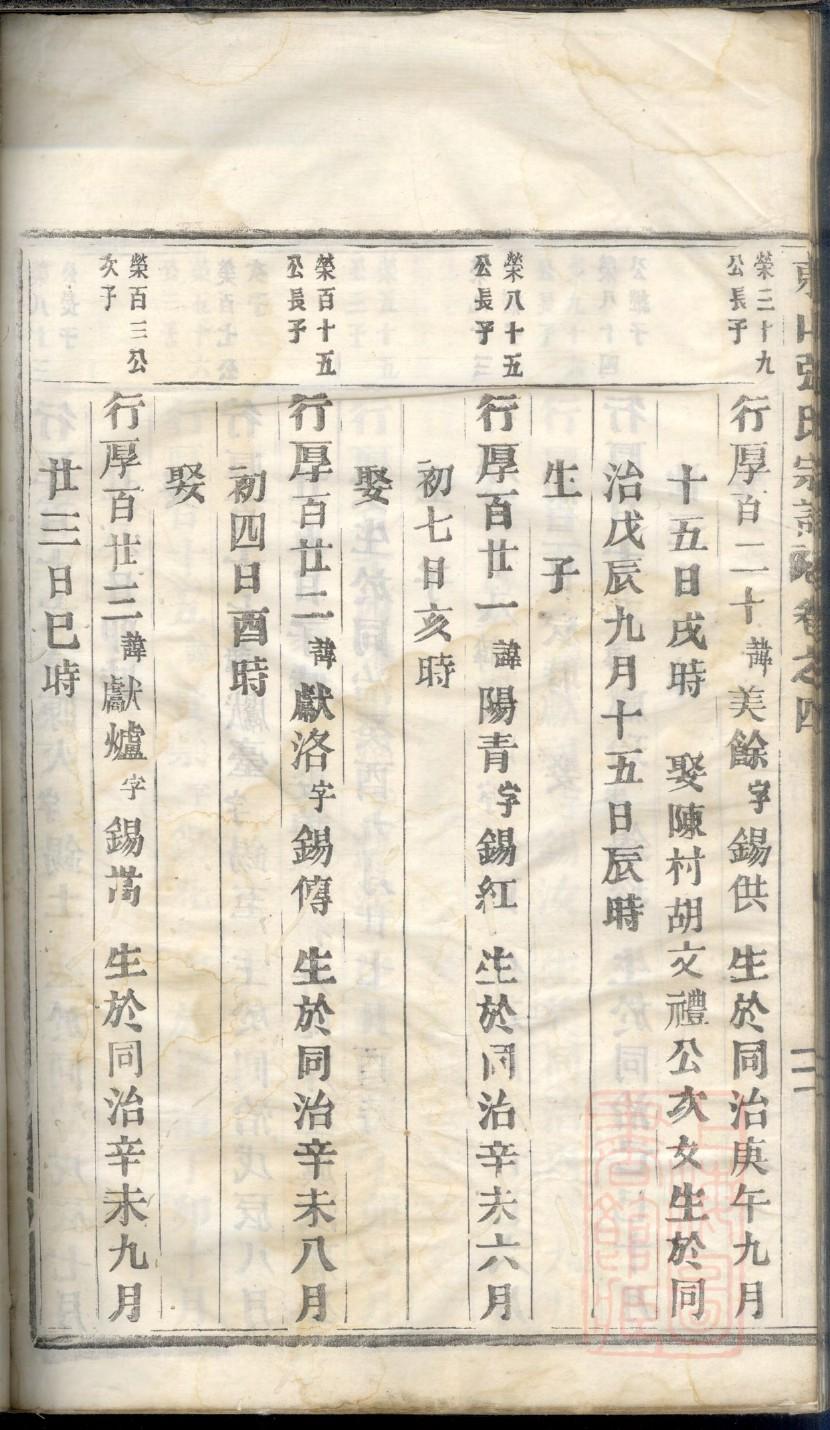 東山張氏宗譜 卷之四
二
榮三十九
公長子
行厚百二十諱美餘字錫供 生於同治庚午九月
十五日戌時 娶陳村胡文禮公次女生於同
治戊辰九月十五日辰時
生子
榮八十五
公長子
行厚百廿一諱陽青字錫紅 生於同治辛未六月
初七日亥時
娶
榮百十五
公長子
行厚百廿二諱獻洛字錫傳 生於同治辛未八月
初四日酉時
娶
榮百三公
次子
行厚百廿三諱獻爐字錫嵩 生於同治辛未九月
廿三日巳時